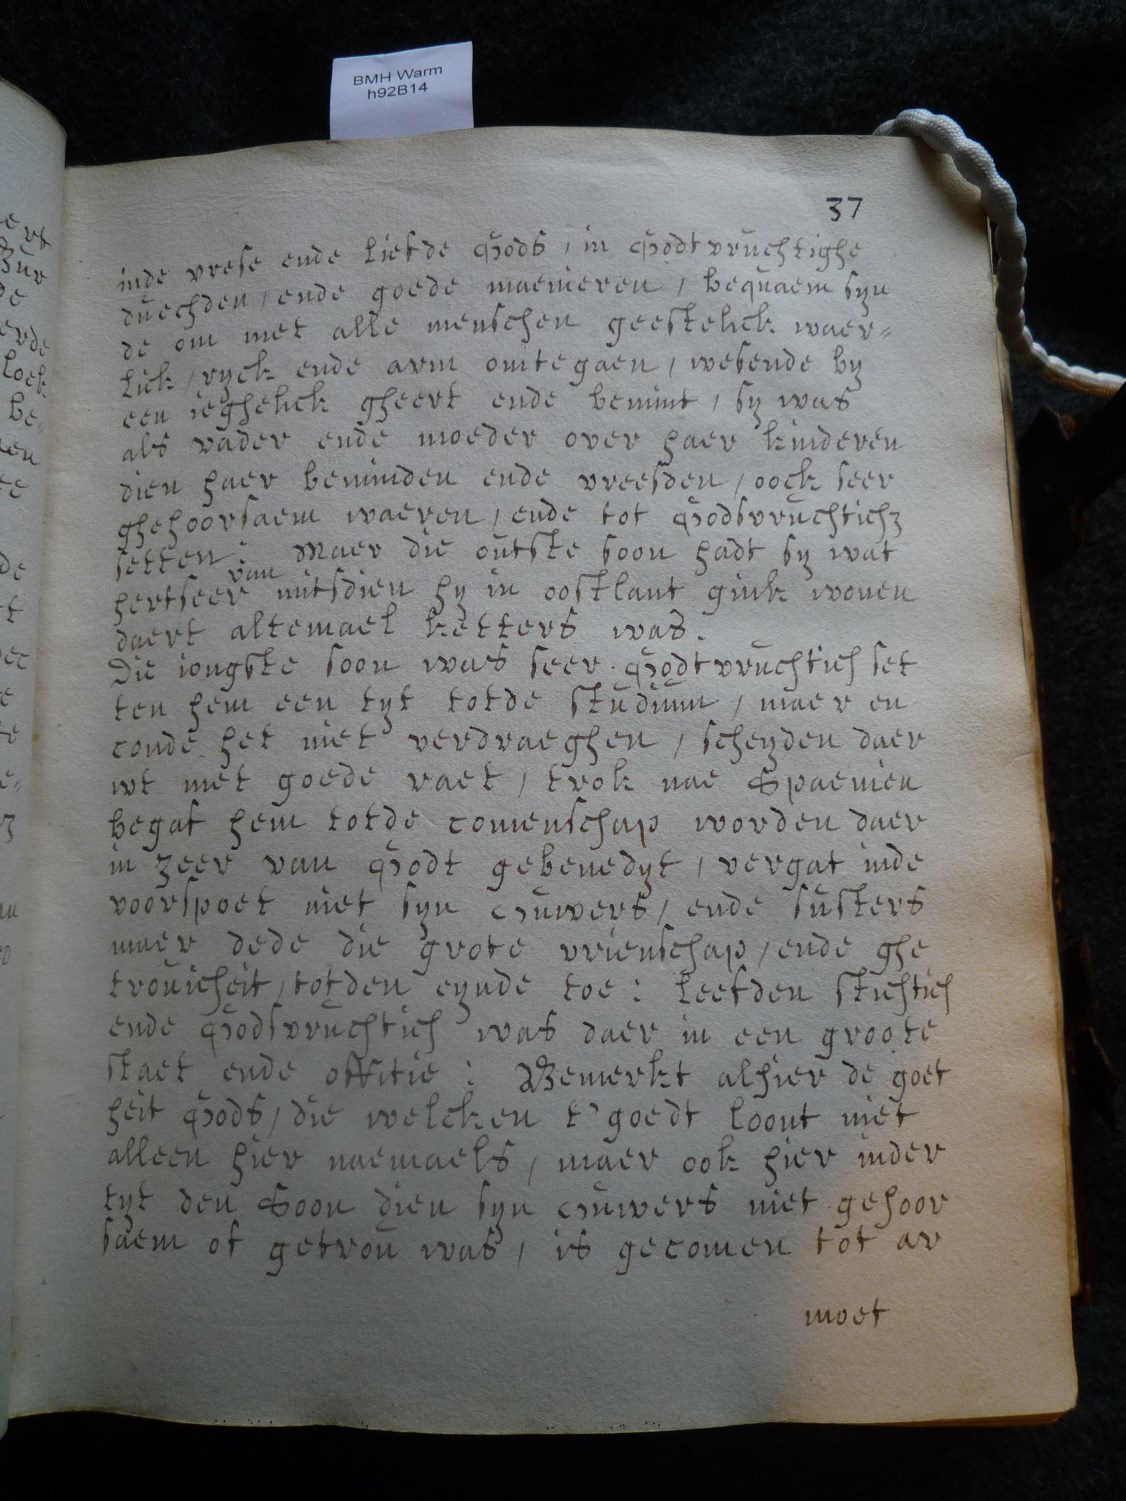 BMH Warm
h92B14
37
inde vrese ende liefde Gods, in Godtvruchtighe
duechden, ende goede maenieren, bequaem syn
de om met alle menschen geestelick waer=
lick, ryck ende arm om te gaen, wesende by
een ieghelick gheert ende bemint, sy was
als vader ende moeder over haer kinderen
dien haer beminden ende vreesden, oock seer
ghehoorsaem waeren, ende tot Godsvruchtich3
setten: Maer die outste soon hadt sy wat
hertseer van mitsdien hy in oostlant gink wonen
daert altemael ketters was.
Die iongste soon was seer Godtvruchtich set
ten hem een tyt totde studium, maer en
conde het niet verdraeghen, scheyden daer
wt met goede raet, trok nae Spaenien
begaf hem totde comenschap worden daer
in zeer van Godt gebenedyt, vergat inde
voorspoet niet syn ouwers, ende susters
maer dede die grote vrienschap, ende ghe
trouicheit, totden eynde toe: leefden stichtich
ende Godsvruchtich was daer in een groote
staet ende offitie: Bemerkt alhier de goet
heit Gods, die welcken t'goedt loont niet
alleen hier naemaels, maer ook hier inder
tyt den Soon dien syn ouwers niet gehoor
saem of getrou was, is gecomen tot ar
moet